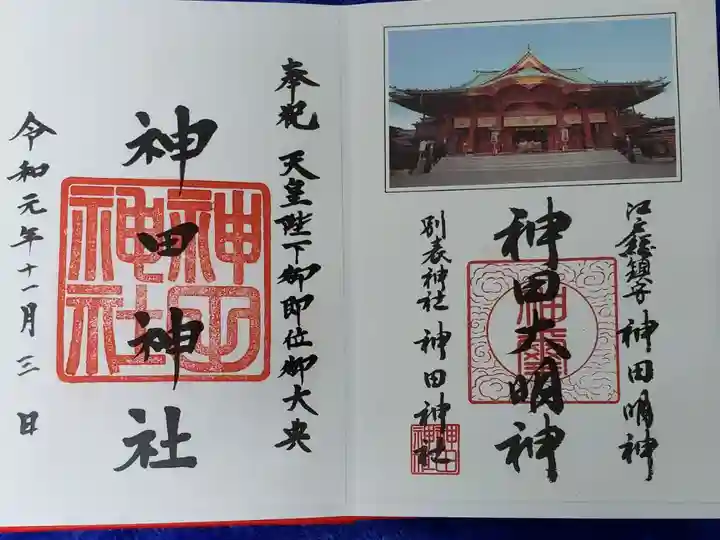 江戸総鎮守 神田明神
神田大明神
別表神社 神田神社
奉祝 天皇陛下御即位御大典
神田神社
令和元年十一月三日
神田神社
神田神社